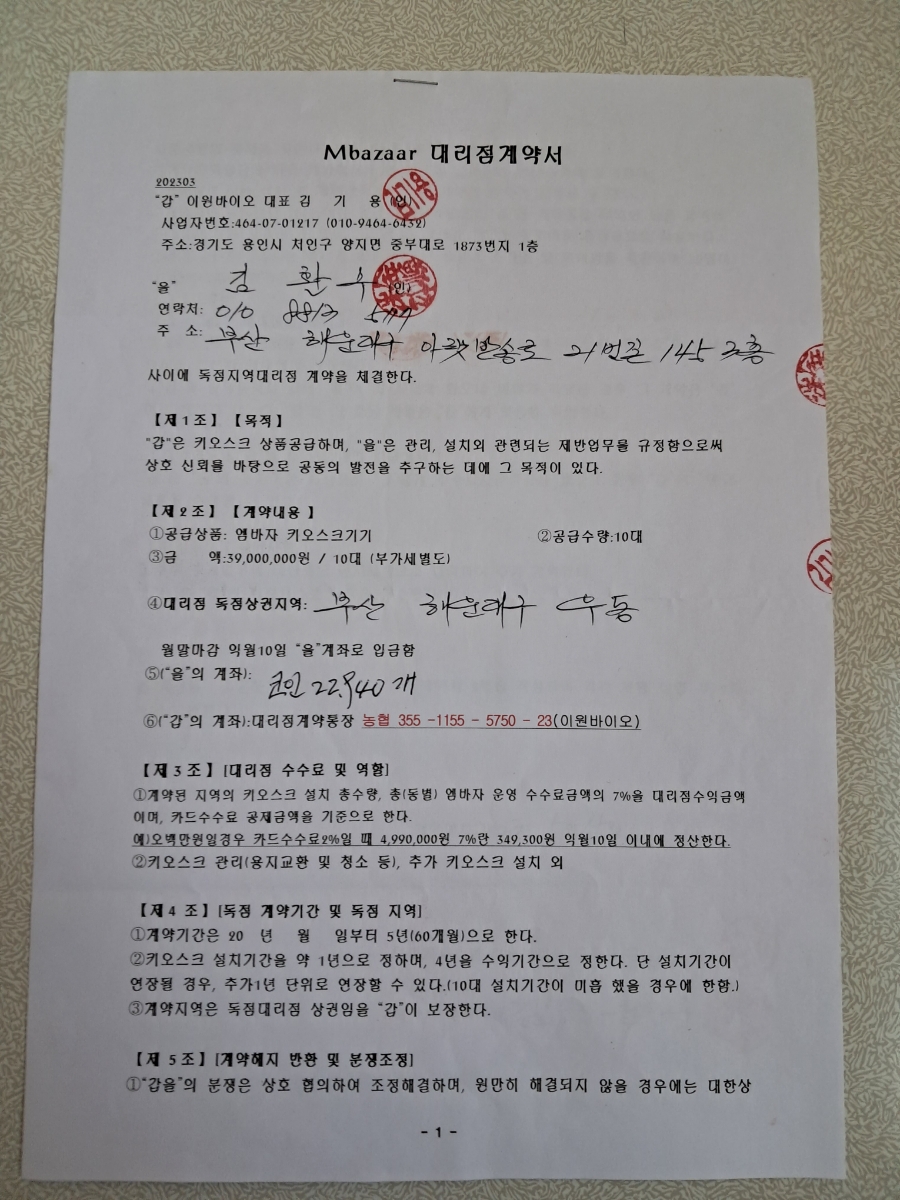 Mbazaar 대리점계약서
202303
“갑” 이원바이오 대표 김 기 용 (인)
사업자번호:464-07-01217 (010-9464-6432)
주소:경기도 용인시 처인구 양지면 중부대로 1873번지 1층
“을” 김 환 우 (인)
연락처: 010 8813
주 소: 부산 해운대구 아랫반송로 21번길 145 2층
사이에 독점지역대리점 계약을 체결한다.
【제1조】【목적】
"갑"은 키오스크 상품공급하며, "을"은 관리, 설치외 관련되는 제반업무를 규정함으로써
상호 신뢰를 바탕으로 공동의 발전을 추구하는 데에 그 목적이 있다.
【제2조】【계약내용 】
①공급상품: 엠바자 키오스크기기 ②공급수량:10대
③금 액:39,000,000원 / 10대 (부가세별도)
④대리점 독점상권지역: 부산 해운대구 우동
월말마감 익월10일 “을”계좌로 입금함
⑤(“을”의 계좌): 코인 22,940개
⑥(“갑”의 계좌):대리점계약통장 농협 355 -1155 - 5750 - 23(이원바이오)
【제3조】[대리점 수수료 및 역할]
①계약된 지역의 키오스크 설치 총수량, 총(동별) 엠바자 운영 수수료금액의 7%을 대리점수익금액
이며, 카드수수료 공제금액을 기준으로 한다.
예)오백만원일경우 카드수수료2%일 때 4,990,000원 7%란 349,300원 익월10일 이내에 정산한다.
②키오스크 관리(용지교환 및 청소 등), 추가 키오스크 설치 외
【제4 조】[독점 계약기간 및 독점 지역]
①계약기간은 20 년 월 일부터 5년(60개월)으로 한다.
②키오스크 설치기간을 약 1년으로 정하며, 4년을 수익기간으로 정한다. 단 설치기간이
연장될 경우, 추가1년 단위로 연장할 수 있다.(10대 설치기간이 미흡 했을 경우에 한함.)
③계약지역은 독점대리점 상권임을 “갑”이 보장한다.
【제 5조】[계약해지 반환 및 분쟁조정]
①“갑을”의 분쟁은 상호 협의하여 조정해결하며, 원만히 해결되지 않을 경우에는 대한상
- 1 -